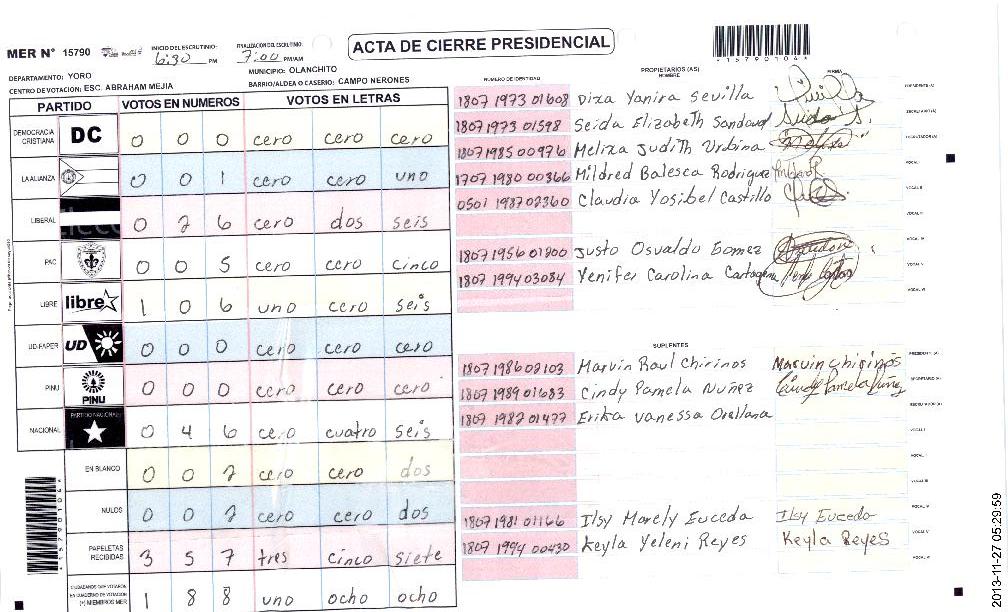 ACTA DE CIERRE PRESIDENCIAL
MER N° 15790
INICIO DEL ESCRUTINIO: 6:30 PM
FINALIZACION DEL ESCRUTINIO: 7:00 PM/AM
*15790104*
DEPARTAMENTO: YORO
MUNICIPIO: OLANCHITO
CENTRO DE VOTACION: ESC. ABRAHAM MEJIA
BARRIO/ALDEA O CASERIO: CAMPO NERONES
PARTIDO VOTOS EN NUMEROS VOTOS EN LETRAS
DEMOCRACIA CRISTIANA DC 0 0 0 cero cero cero
LA ALIANZA 0 0 1 cero cero uno
LIBERAL 0 2 6 cero dos seis
PAC 0 0 5 cero cero cinco
LIBRE libre 1 0 6 uno cero seis
UD-FAPER UD 0 0 0 cero cero cero
PINU PINU 0 0 0 cero cero cero
NACIONAL PARTIDO NACIONAL 0 4 6 cero cuatro seis
EN BLANCO 0 0 2 cero cero dos
NULOS 0 0 2 cero cero dos
PAPELETAS RECIBIDAS 3 5 7 tres cinco siete
CIUDADANOS QUE VOTARON EN CUADERNO DE VOTACION (+) MIEMBROS MER 1 8 8 uno ocho ocho
*15790104*
NUMERO DE IDENTIDAD
PROPIETARIOS (AS)
NOMBRE
FIRMA
1807 1973 01608 Dixa Yanira Sevilla PRESIDENTE (A)
1807 1973 01598 Seida Elizabeth Sandoval SECRETARIO (A)
1807 1985 00976 Meliza Judith Urbina ESCRUTADOR (A)
1707 1980 00366 Mildred Balesca Rodriguez VOCAL I
0501 1987 02360 Claudia Yosibel Castillo VOCAL II
VOCAL III
1807 1956 01800 Justo Osvaldo Gomez VOCAL IV
1807 1994 03084 Yenifer Carolina Cartagena VOCAL V
VOCAL VI
SUPLENTES
1807 1986 02103 Marvin Raul Chirinos Marvin Chirinos PRESIDENTE (A)
1807 1989 01683 Cindy Pamela Nuñez Cindy Pamela Nuñez SECRETARIO (A)
1807 1987 01477 Erika Vanessa Orellana ESCRUTADOR (A)
VOCAL I
VOCAL II
VOCAL III
1807 1981 01166 Ilsy Marely Euceda Ilsy Euceda VOCAL IV
1807 1994 00430 Keyla Yeleni Reyes Keyla Reyes VOCAL V
VOCAL VI
2013-11-27 05:29:59